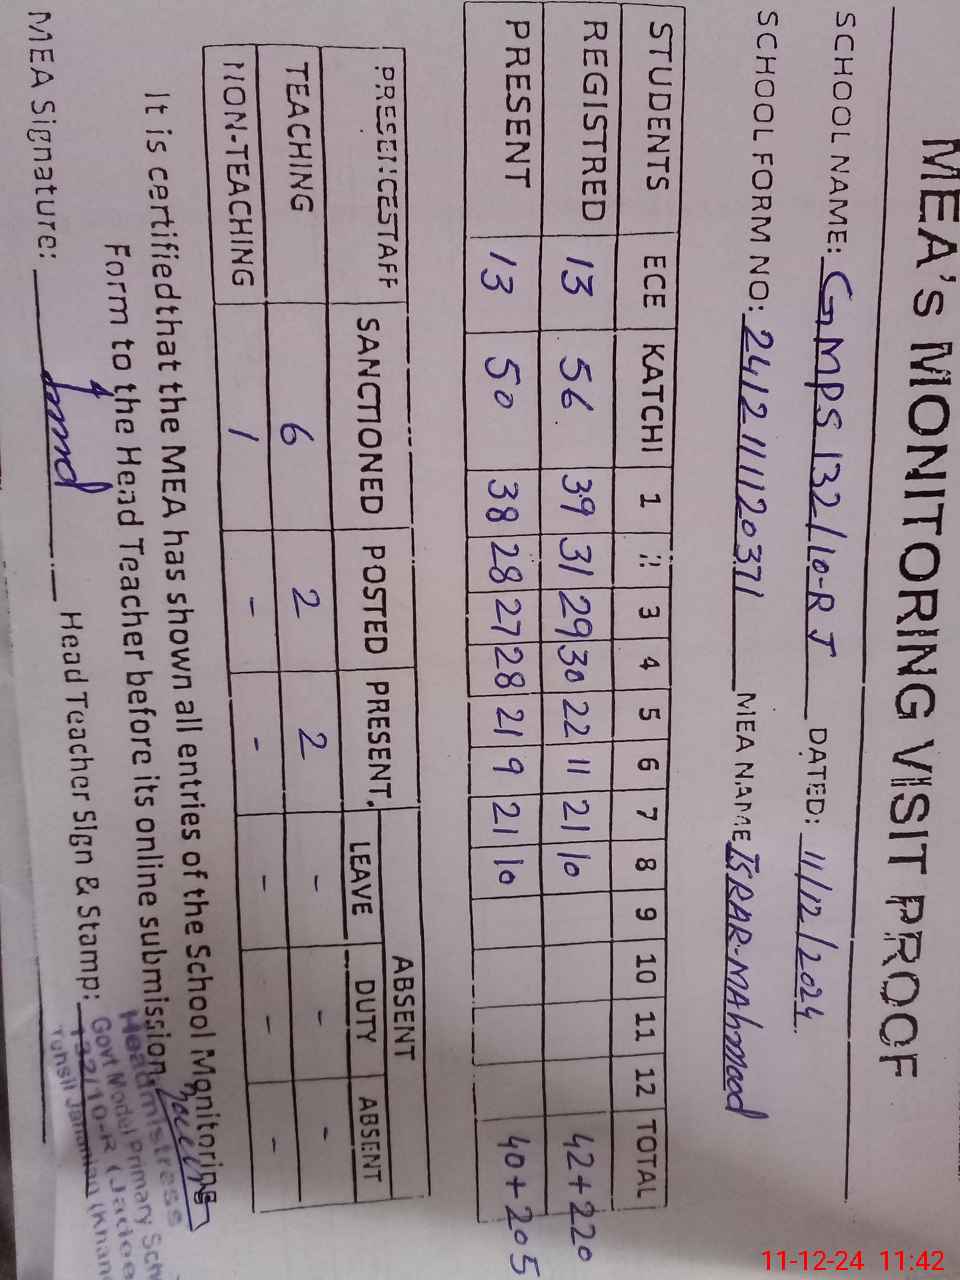 MEA's MONITORING VISIT PROOF
SCHOOL NAME: GMPS 132/10-R J DATED: 11/12/2024
SCHOOL FORM NO: 24121111203.71 MEA NAME ISRAR-MAhmood
STUDENTS ECE KATCHI 1 2 3 4 5 6 7 8 9 10 11 12 TOTAL
REGISTRED 13 56 39 31 29 30 22 11 21 10 42+220
PRESENT 13 50 38 28 27 28 21 9 21 10 40+205
PRESENCESTAFF SANCTIONED POSTED PRESENT ABSENT
LEAVE DUTY ABSENT
TEACHING 6 2 2 - - -
NON-TEACHING 1 - - - - -
It is certifiedthat the MEA has shown all entries of the School Monitoring
Form to the Head Teacher before its online submission.
MEA Signature: Head Teacher Sign & Stamp:
Headmistress
Govt Model Primary Sch
132/10-R (Jadee
Tehsil Jahanian (Khan
11-12-24 11:42